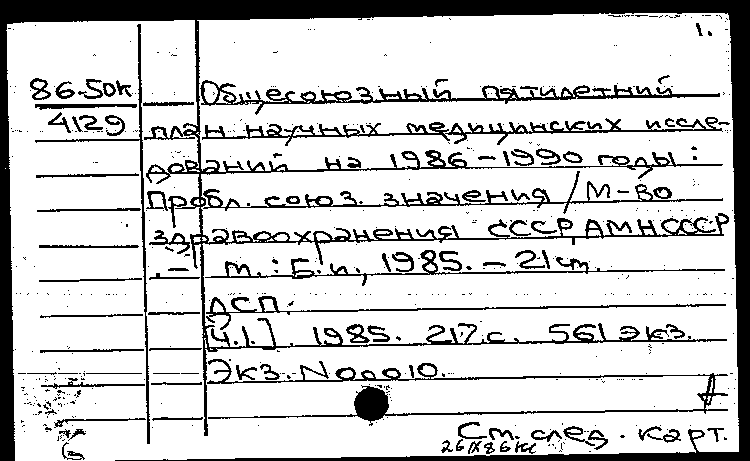 1.
86-50к Общесоюзный пятилетний
4129 план научных медицинских иссле-
дований на 1986-1990 годы :
Пробл. союз. значения / М-во
здравоохранения СССР, АМН СССР
. - м. : Б.и., 1985. - 21 см.
ДСП.
[Ч.1.] 1985. 217 с. 561 экз.
Экз. N 00010.
См. след. карт.